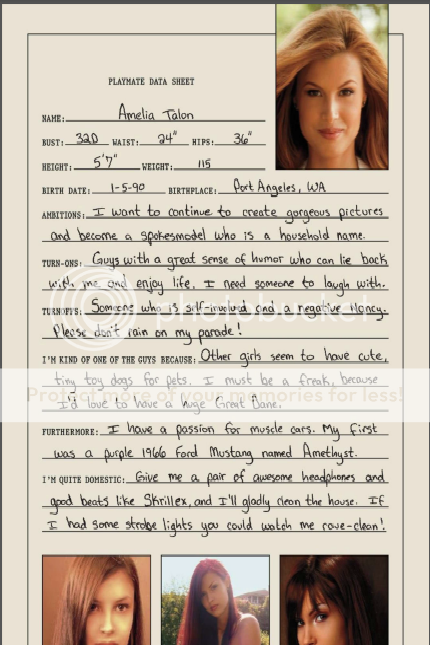 PLAYMATE DATA SHEET
NAME: Amelia Talon
BUST: 32D WAIST: 24" HIPS: 36"
HEIGHT: 5'7" WEIGHT: 115
BIRTH DATE: 1-5-90 BIRTHPLACE: Port Angeles, WA
AMBITIONS: I want to continue to create gorgeous pictures
and become a spokesmodel who is a household name.
TURN-ONS: Guys with a great sense of humor who can lie back
with me and enjoy life. I need someone to laugh with.
TURNOFFS: Someone who is self-involved and a negative Nancy.
Please don't rain on my parade!
I'M KIND OF ONE OF THE GUYS BECAUSE: Other girls seem to have cute,
tiny toy dogs for pets. I must be a freak, because
Protect more of your memories for less!
I'd love to have a huge Great Dane.
FURTHERMORE: I have a passion for muscle cars. My first
was a purple 1966 Ford Mustang named Amethyst.
I'M QUITE DOMESTIC: Give me a pair of awesome headphones and
good beats like Skrillex, and I'll gladly clean the house. If
I had some strobe lights you could watch me rave-clean!